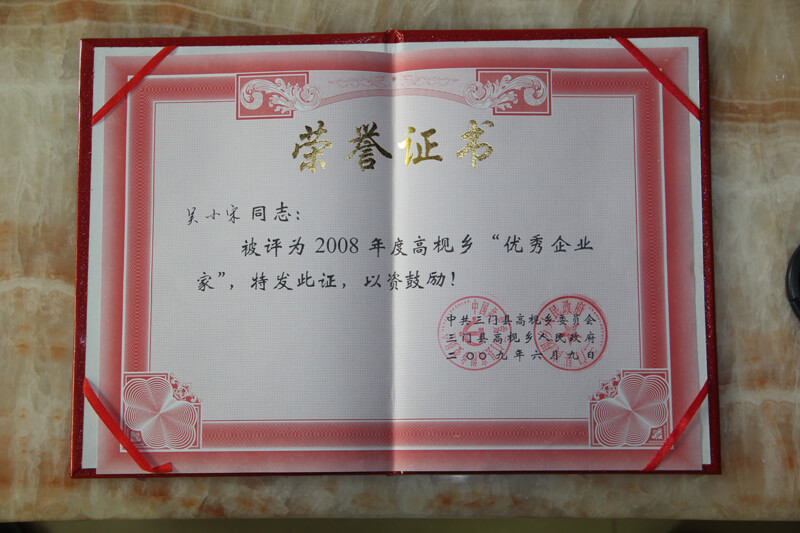 荣誉证书
吴小宋同志：
被评为 2008 年度高枧乡“优秀企业
家”，特发此证，以资鼓励！
中共三门县高枧乡委员会
三门县高枧乡人民政府
二〇〇九年六月九日